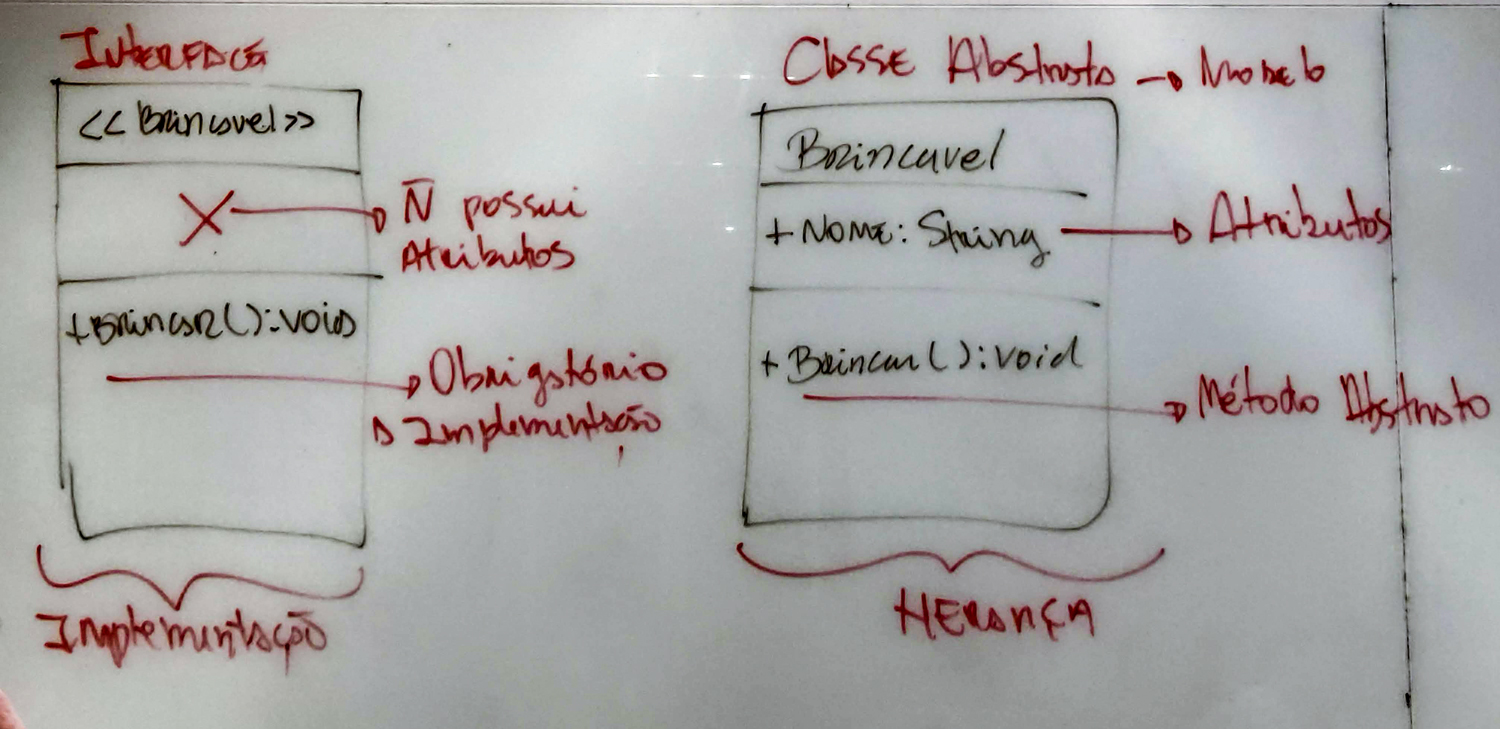 INTERFACE
<<Brincavel>>
X
Ñ possui
Atributos
+Brincar():void
Obrigatório
a Implementação
Implementação
Classe Abstrata → Modelo
Brincavel
+ NOME: String
Atributos
+ Brincar():void
Método Abstrato
HERANÇA